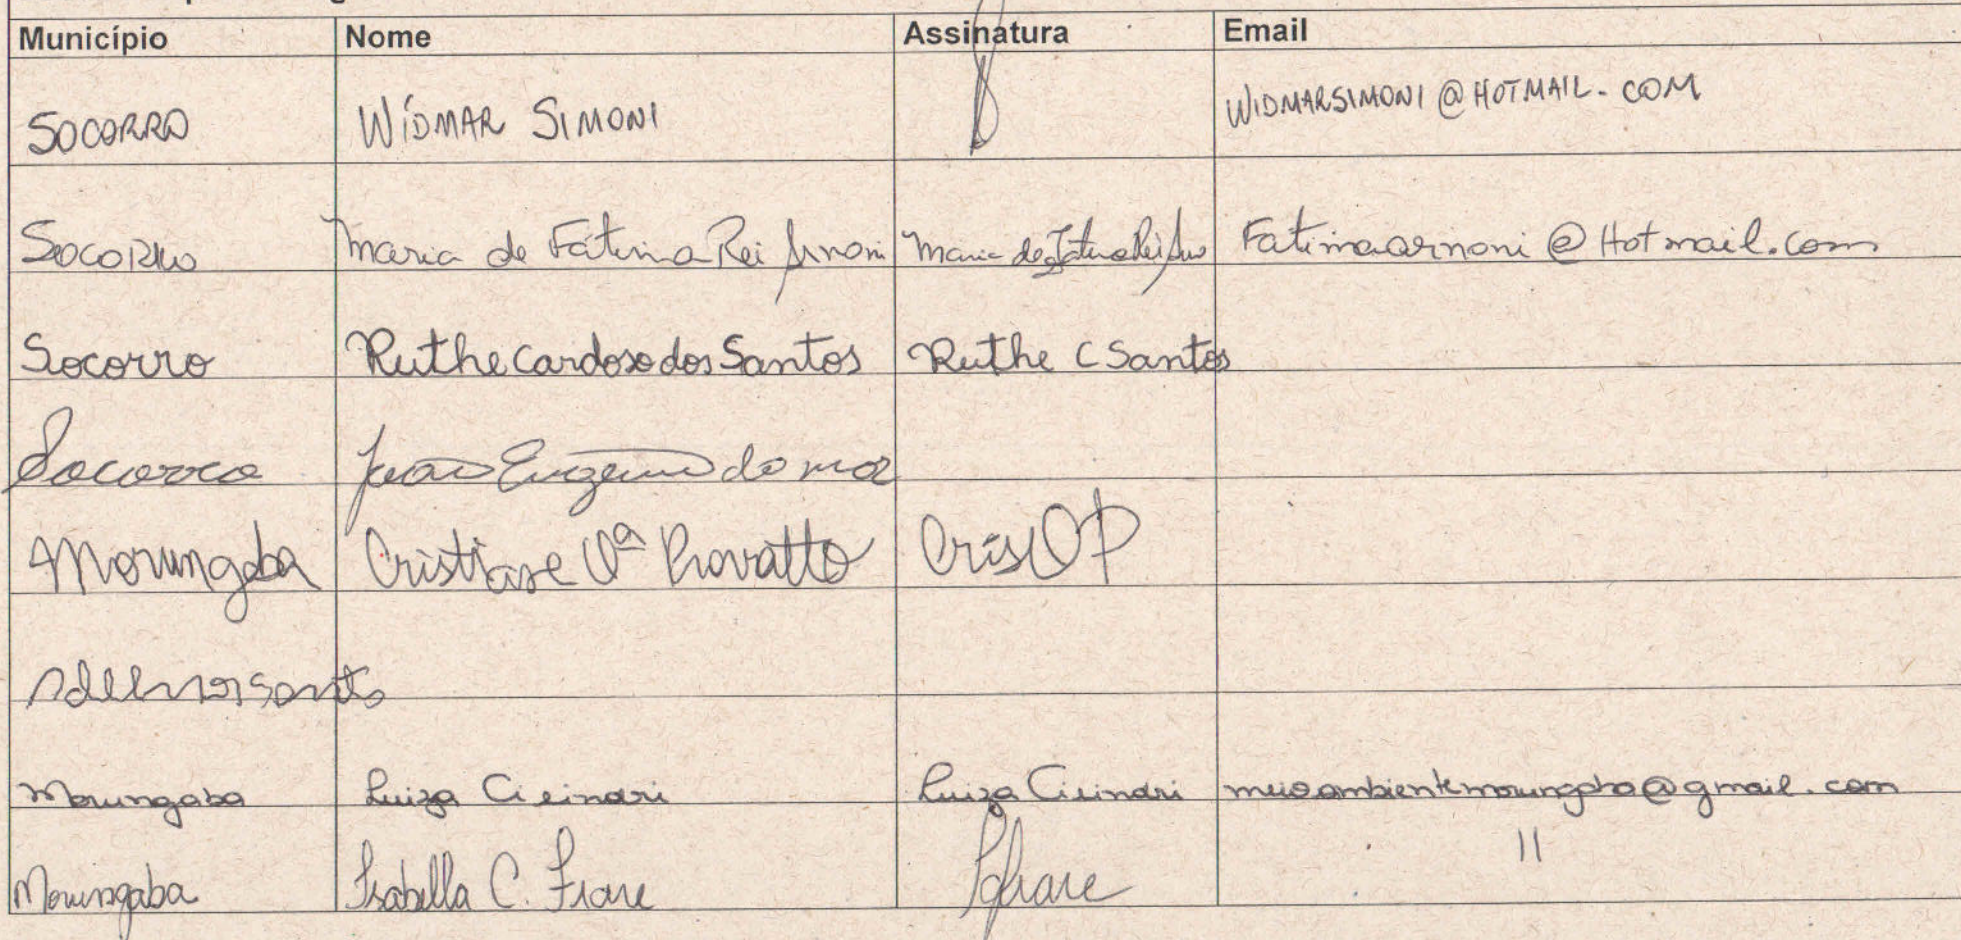 Município Nome Assinatura Email
SOCORRO WIDMAR SIMONI WIDMARSIMONI@HOTMAIL.COM
Socorro Maria de Fátima Rei Maria de Fatimaarnoni@Hotmail.com
Socorro Ruthe Cardoso dos Santos Ruthe C Santos
Socorro João Eugenio do
Morungaba Cristiane Vª Provatto Cris
Morungaba Luiza Cicinari Luiza Cicinari meioambientemorungaba@gmail.com
Morungaba Isabella C. Fiare 11